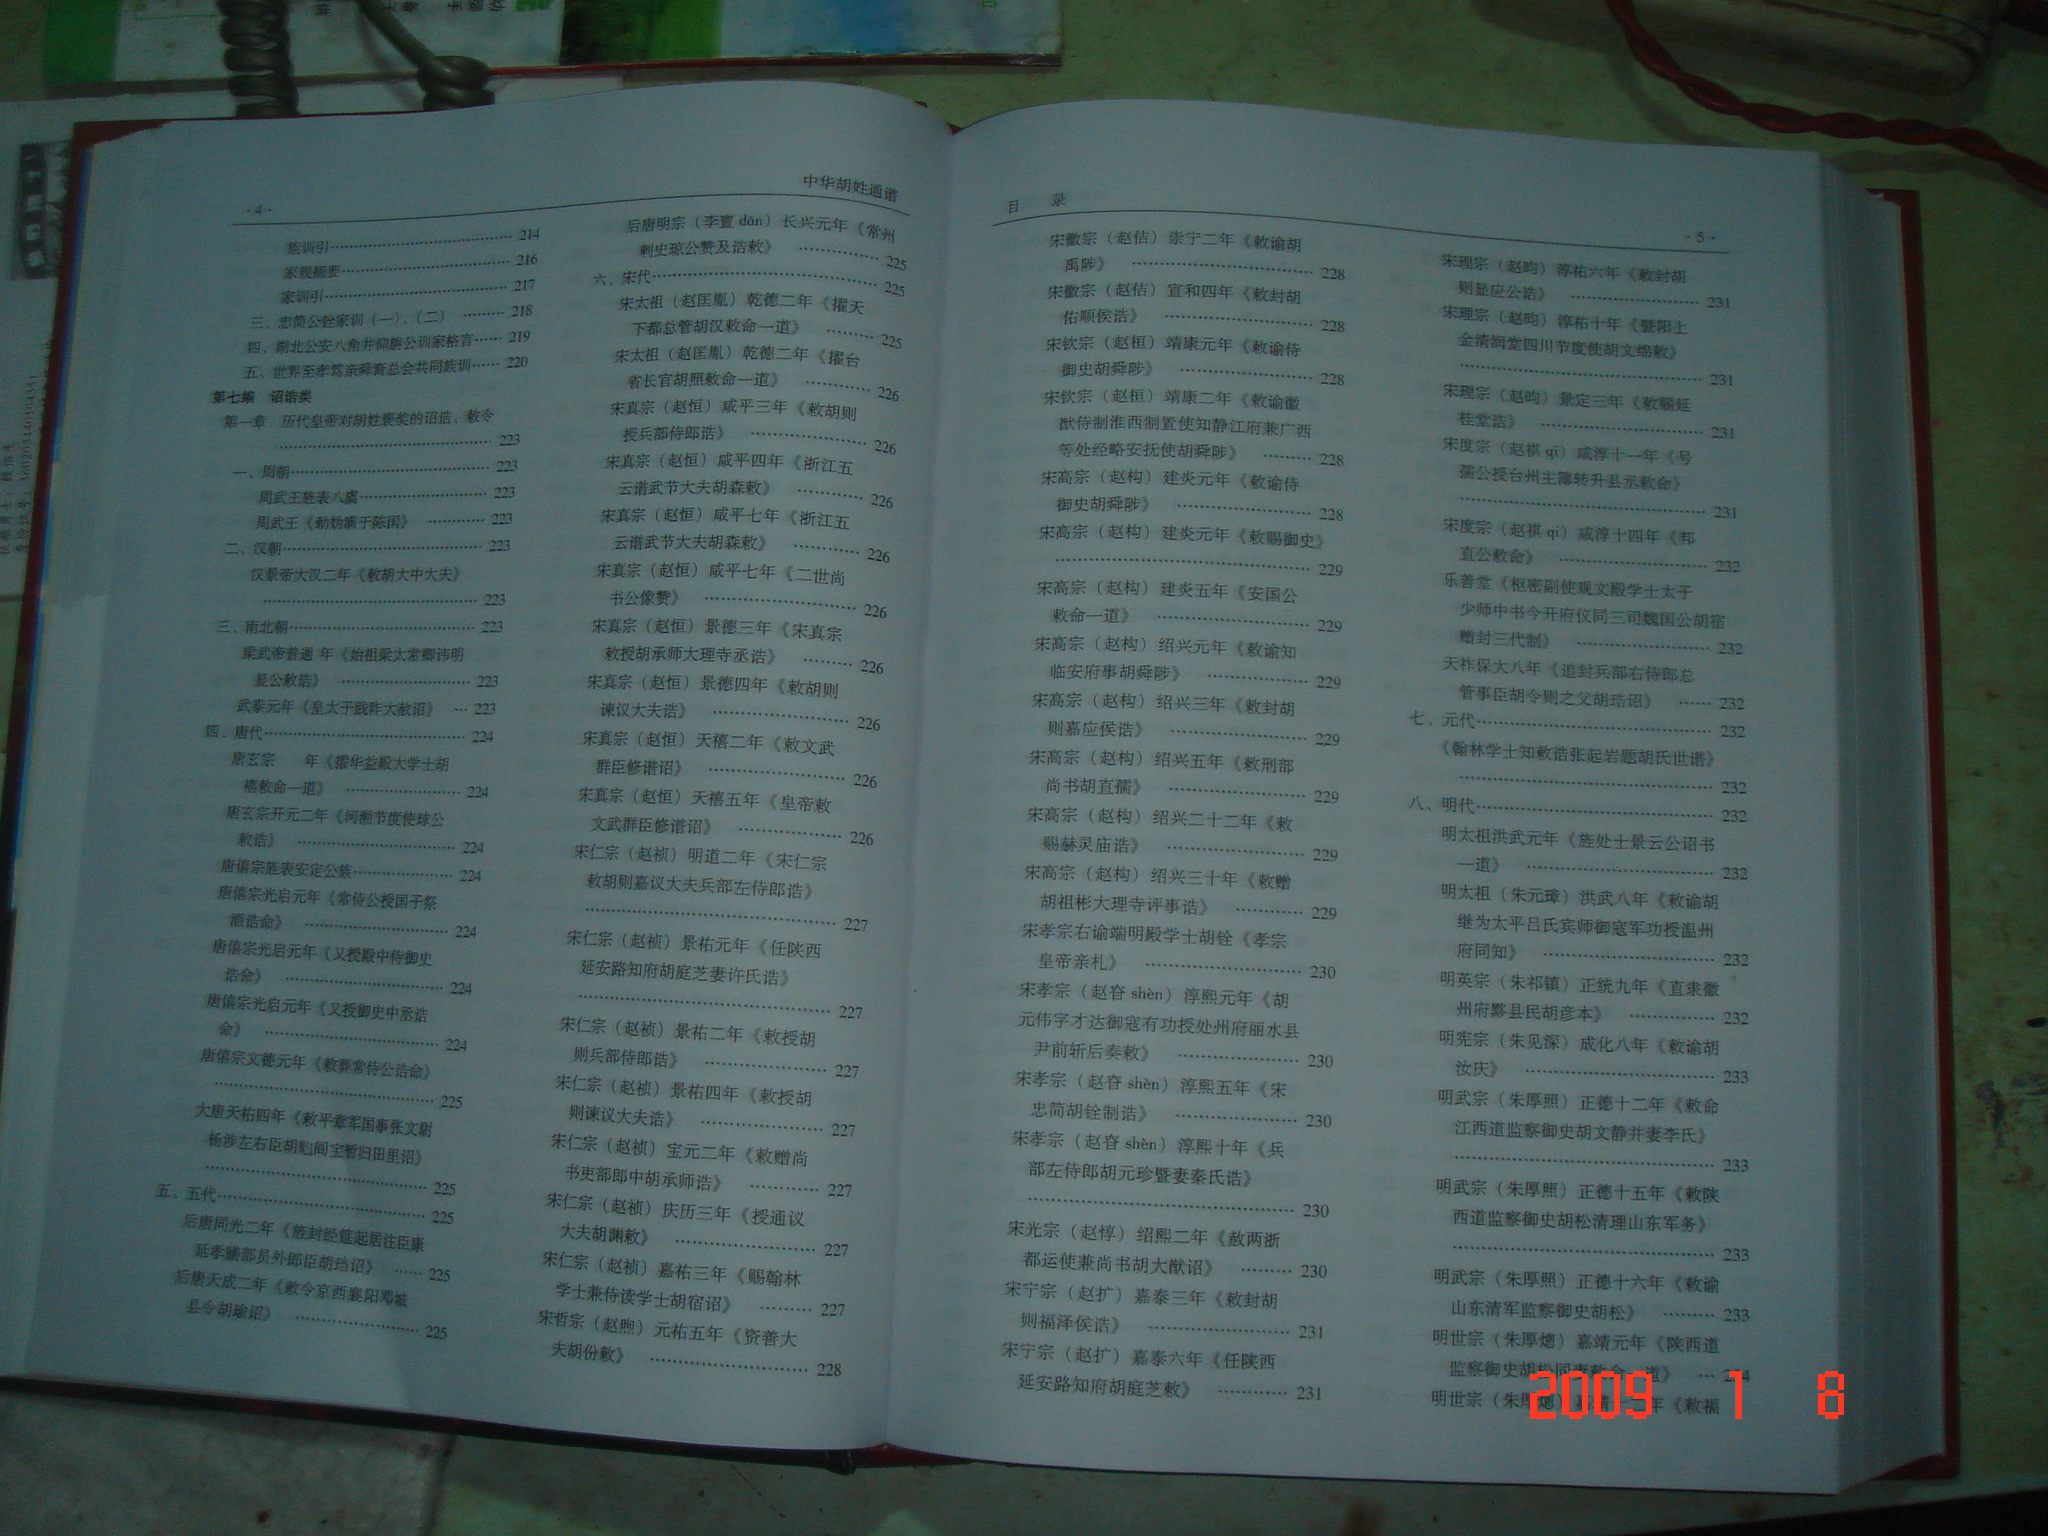 ·4·
中华胡姓通谱
族训引 214
家规摘要 216
家训引 217
三、忠简公铨家训（一）、（二） 218
四、湖北公安八角井仰旃公训家格言 219
五、世界至孝笃亲舜裔总会共同族训 220
第七编 诏诰类
第一章 历代皇帝对胡姓褒奖的诏诰、敕令
223
一、周朝 223
周武王旌表八虞 223
周武王《勅妫满于陈国》 223
二、汉朝 223
汉景帝大汉二年《敕胡大中大夫》
223
三、南北朝 223
梁武帝普通 年《始祖梁太常卿讳明
显公敕诰》 223
武泰元年《皇太子践阼大赦诏》 223
四、唐代 224
唐玄宗 年《擢华益殿大学士胡
禧敕命一道》 224
唐玄宗开元二年《河潮节度使球公
敕诰》 224
唐僖宗旌表安定公族 224
唐僖宗光启元年《常侍公授国子祭
酒诰命》 224
唐僖宗光启元年《又授殿中侍御史
诰命》 224
唐僖宗光启元年《又授御史中丞诰
命》 224
唐僖宗文德元年《敕葬常侍公诰命》
225
大唐天祐四年《敕平章军国事张文尉
杨涉左右臣胡勉阎宝暂归田里诏》
225
五、五代 225
后唐同光二年《旌封经筵起居注臣康
延孝膳部员外郎臣胡珰诏》 225
后唐天成二年《敕令京西襄阳邓城
县令胡瑜诏》 225
后唐明宗（李亶 dǎn）长兴元年《常州
刺史琼公赞及诰敕》 225
六、宋代 225
宋太祖（赵匡胤）乾德二年《擢天
下都总管胡汉敕命一道》 225
宋太祖（赵匡胤）乾德二年《擢台
省长官胡照敕命一道》 226
宋真宗（赵恒）咸平三年《敕胡则
授兵部侍郎诰》 226
宋真宗（赵恒）咸平四年《浙江五
云谱武节大夫胡森敕》 226
宋真宗（赵恒）咸平七年《浙江五
云谱武节大夫胡森敕》 226
宋真宗（赵恒）咸平七年《二世尚
书公像赞》 226
宋真宗（赵恒）景德三年《宋真宗
敕授胡承师大理寺丞诰》 226
宋真宗（赵恒）景德四年《敕胡则
谏议大夫诰》 226
宋真宗（赵恒）天禧二年《敕文武
群臣修谱诏》 226
宋真宗（赵恒）天禧五年《皇帝敕
文武群臣修谱诏》 226
宋仁宗（赵祯）明道二年《宋仁宗
敕胡则嘉议大夫兵部左侍郎诰》
227
宋仁宗（赵祯）景祐元年《任陕西
延安路知府胡庭芝妻许氏诰》
227
宋仁宗（赵祯）景祐二年《敕授胡
则兵部侍郎诰》 227
宋仁宗（赵祯）景祐四年《敕授胡
则谏议大夫诰》 227
宋仁宗（赵祯）宝元二年《敕赠尚
书吏部郎中胡承师诰》 227
宋仁宗（赵祯）庆历三年《授通议
大夫胡渊敕》 227
宋仁宗（赵祯）嘉祐三年《赐翰林
学士兼侍读学士胡宿诏》 227
宋哲宗（赵煦）元祐五年《资善大
夫胡份敕》 228
目 录
·5·
宋徽宗（赵佶）崇宁二年《敕谕胡
禹陟》 228
宋徽宗（赵佶）宣和四年《敕封胡
佑顺侯诰》 228
宋钦宗（赵桓）靖康元年《敕谕侍
御史胡舜陟》 228
宋钦宗（赵桓）靖康二年《敕谕徽
猷待制淮西制置使知静江府兼广西
等处经略安抚使胡舜陟》 228
宋高宗（赵构）建炎元年《敕谕侍
御史胡舜陟》 228
宋高宗（赵构）建炎元年《敕赐御史》
229
宋高宗（赵构）建炎五年《安国公
敕命一道》 229
宋高宗（赵构）绍兴元年《敕谕知
临安府事胡舜陟》 229
宋高宗（赵构）绍兴三年《敕封胡
则嘉应侯诰》 229
宋高宗（赵构）绍兴五年《敕刑部
尚书胡直孺》 229
宋高宗（赵构）绍兴二十二年《敕
赐赫灵庙诰》 229
宋高宗（赵构）绍兴三十年《敕赠
胡祖彬大理寺评事诰》 229
宋孝宗右谕端明殿学士胡铨《孝宗
皇帝亲札》 230
宋孝宗（赵昚 shèn）淳熙元年《胡
元伟字才达御寇有功授处州府丽水县
尹前斩后奏敕》 230
宋孝宗（赵昚 shèn）淳熙五年《宋
忠简胡铨制诰》 230
宋孝宗（赵昚 shèn）淳熙十年《兵
部左侍郎胡元珍暨妻秦氏诰》
230
宋光宗（赵惇）绍熙二年《赦两浙
都运使兼尚书胡大猷诏》 230
宋宁宗（赵扩）嘉泰三年《敕封胡
则福泽侯诰》 231
宋宁宗（赵扩）嘉泰六年《任陕西
延安路知府胡庭芝敕》 231
宋理宗（赵昀）淳祐六年《敕封胡
则显应公诰》 231
宋理宗（赵昀）淳祐十年《暨阳上
金清润堂四川节度使胡文绵敕》
231
宋理宗（赵昀）景定三年《敕赐延
桂堂诰》 231
宋度宗（赵祺 qí）咸淳十一年《号
孺公授台州主簿转升县丞敕命》
231
宋度宗（赵祺 qí）咸淳十四年《邦
直公敕命》 232
乐善堂《枢密副使观文殿学士太子
少师中书令开府仪同三司魏国公胡宿
赠封三代制》 232
天祚保大八年《追封兵部右侍郎总
管事臣胡令则之父胡珸诏》 232
七、元代 232
《翰林学士知敕诰张起岩题胡氏世谱》
232
八、明代 232
明太祖洪武元年《旌处士景云公诏书
一道》 232
明太祖（朱元璋）洪武八年《敕谕胡
继为太平吕氏宾师御寇军功授温州
府同知》 232
明英宗（朱祁镇）正统九年《直隶徽
州府黟县民胡彦本》 232
明宪宗（朱见深）成化八年《敕谕胡
汝庆》 233
明武宗（朱厚照）正德十二年《敕命
江西道监察御史胡文静并妻李氏》
233
明武宗（朱厚照）正德十五年《敕陕
西道监察御史胡松清理山东军务》
233
明武宗（朱厚照）正德十六年《敕谕
山东清军监察御史胡松》 233
明世宗（朱厚熜）嘉靖元年《陕西道
监察御史胡松同妻敕命一道》
明世宗（朱厚熜）嘉靖十二年《敕福
2009 1 8